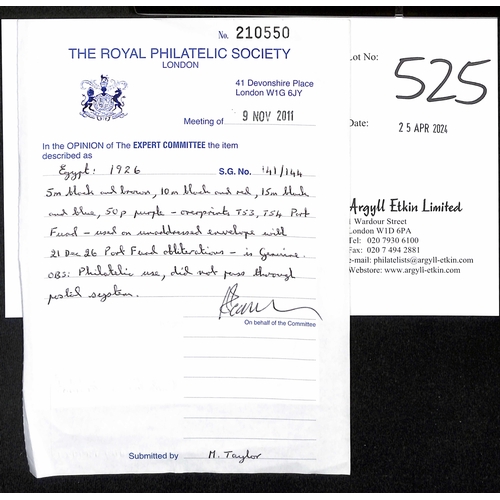 No. 210550
THE ROYAL PHILATELIC SOCIETY
LONDON
41 Devonshire Place
London W1G 6JY
Meeting of 9 NOV 2011
In the OPINION of The EXPERT COMMITTEE the item
described as
Egypt: 1926 S.G. No. 141/144
5m black and brown, 10m black and red, 15m black
and blue, 50p purple - overprints T53, T54 Port
Fuad - used on unaddressed envelope with
21 Dec 26 Port Fuad obliterations - is genuine.
OBS: Philatelic use, did not pass through
postal system.
On behalf of the Committee
Submitted by M. Taylor
Lot No:
525
Date:
25 APR 2024
Argyll Etkin Limited
1 Wardour Street
London W1D 6PA
Tel: 020 7930 6100
Fax: 020 7 494 2881
e-mail: philatelists@argyll-etkin.com
Webstore: www.argyll-etkin.com